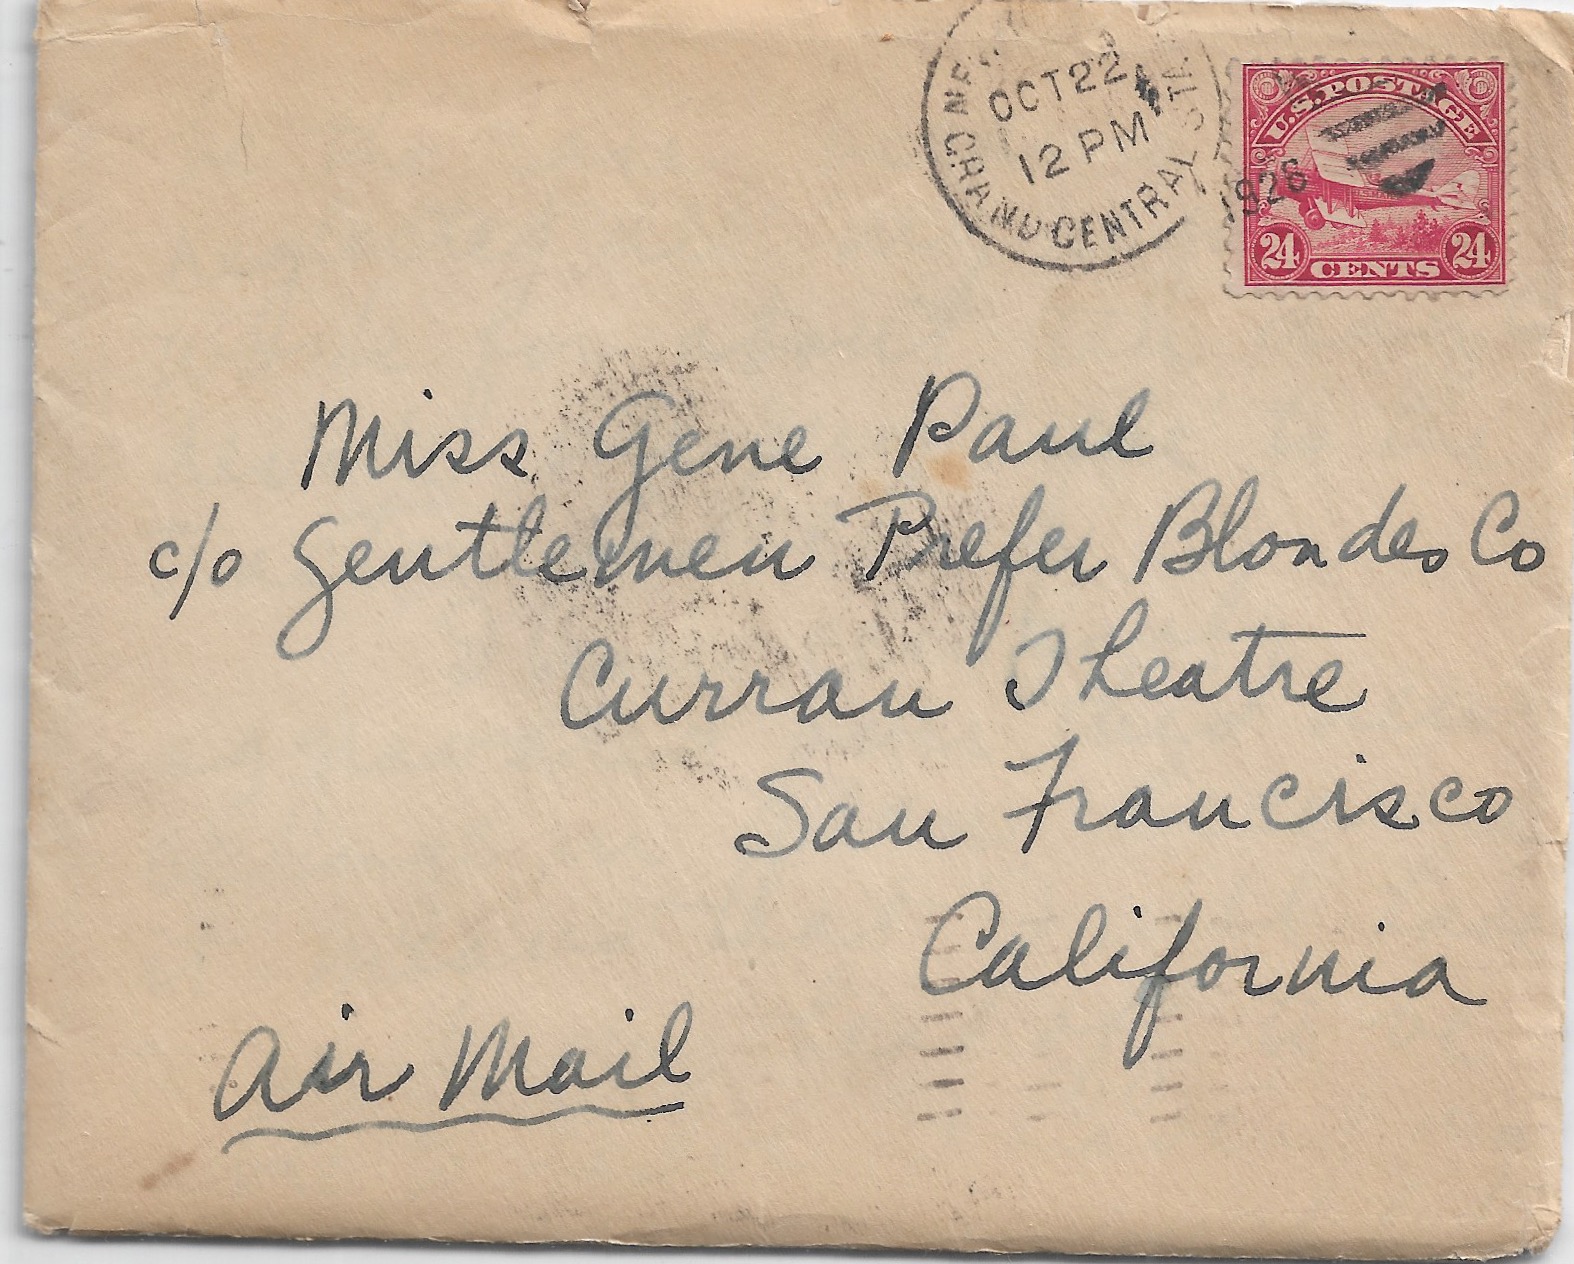 OCT 22
12 PM
GRAND CENTRAL STA
1926
U.S. POSTAGE
24 CENTS 24
Miss Gene Paul
c/o Gentlemen Prefer Blondes Co
Curran Theatre
San Francisco
California
Air Mail